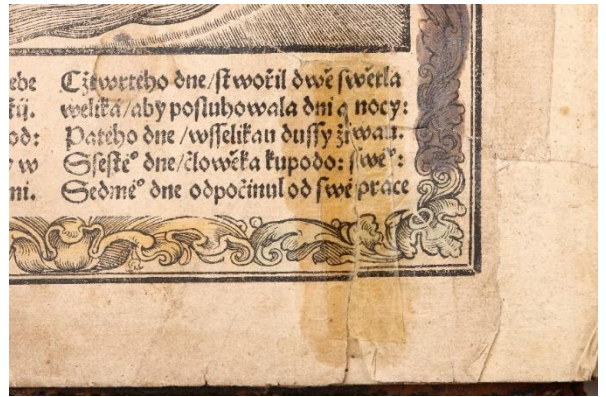 ebe Cžtwrtého dne/stwořil dwě swětla
tij. weliká/aby posluhowala dni a nocy:
od: Pátého dne/wsselikau dussy žiwau.
w Ssesté° dne/člowěka kupodo: swé°:
ni. Sedmé° dne odpočinul od swé práce